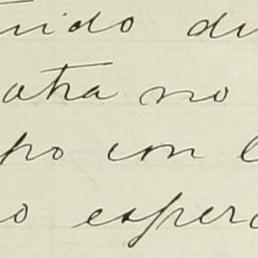 nido di
atra no
po con l
o espera